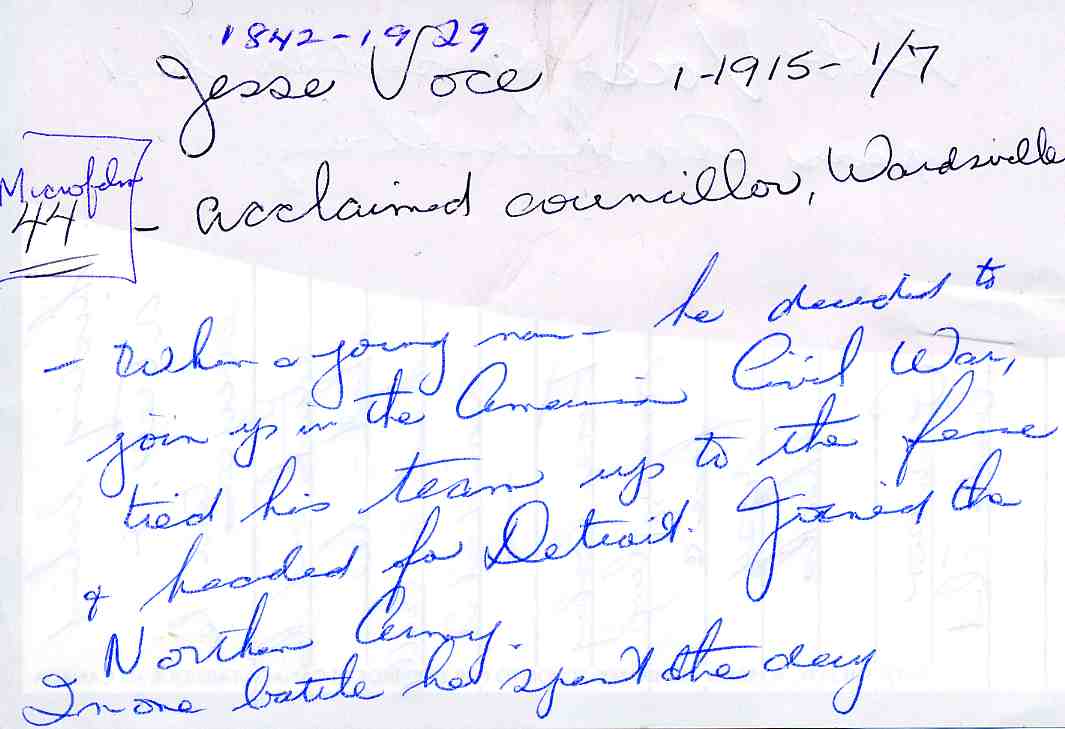 1842-1929
Jesse Voce 1-1915-1/7
Microfilm
44
- acclaimed councillor, Wardsville
- When a young man - he decided to
join up in the American Civil War,
tied his team up to the fence
& headed for Detroit. Joined the
Northern Army.
In one battle he spent the day